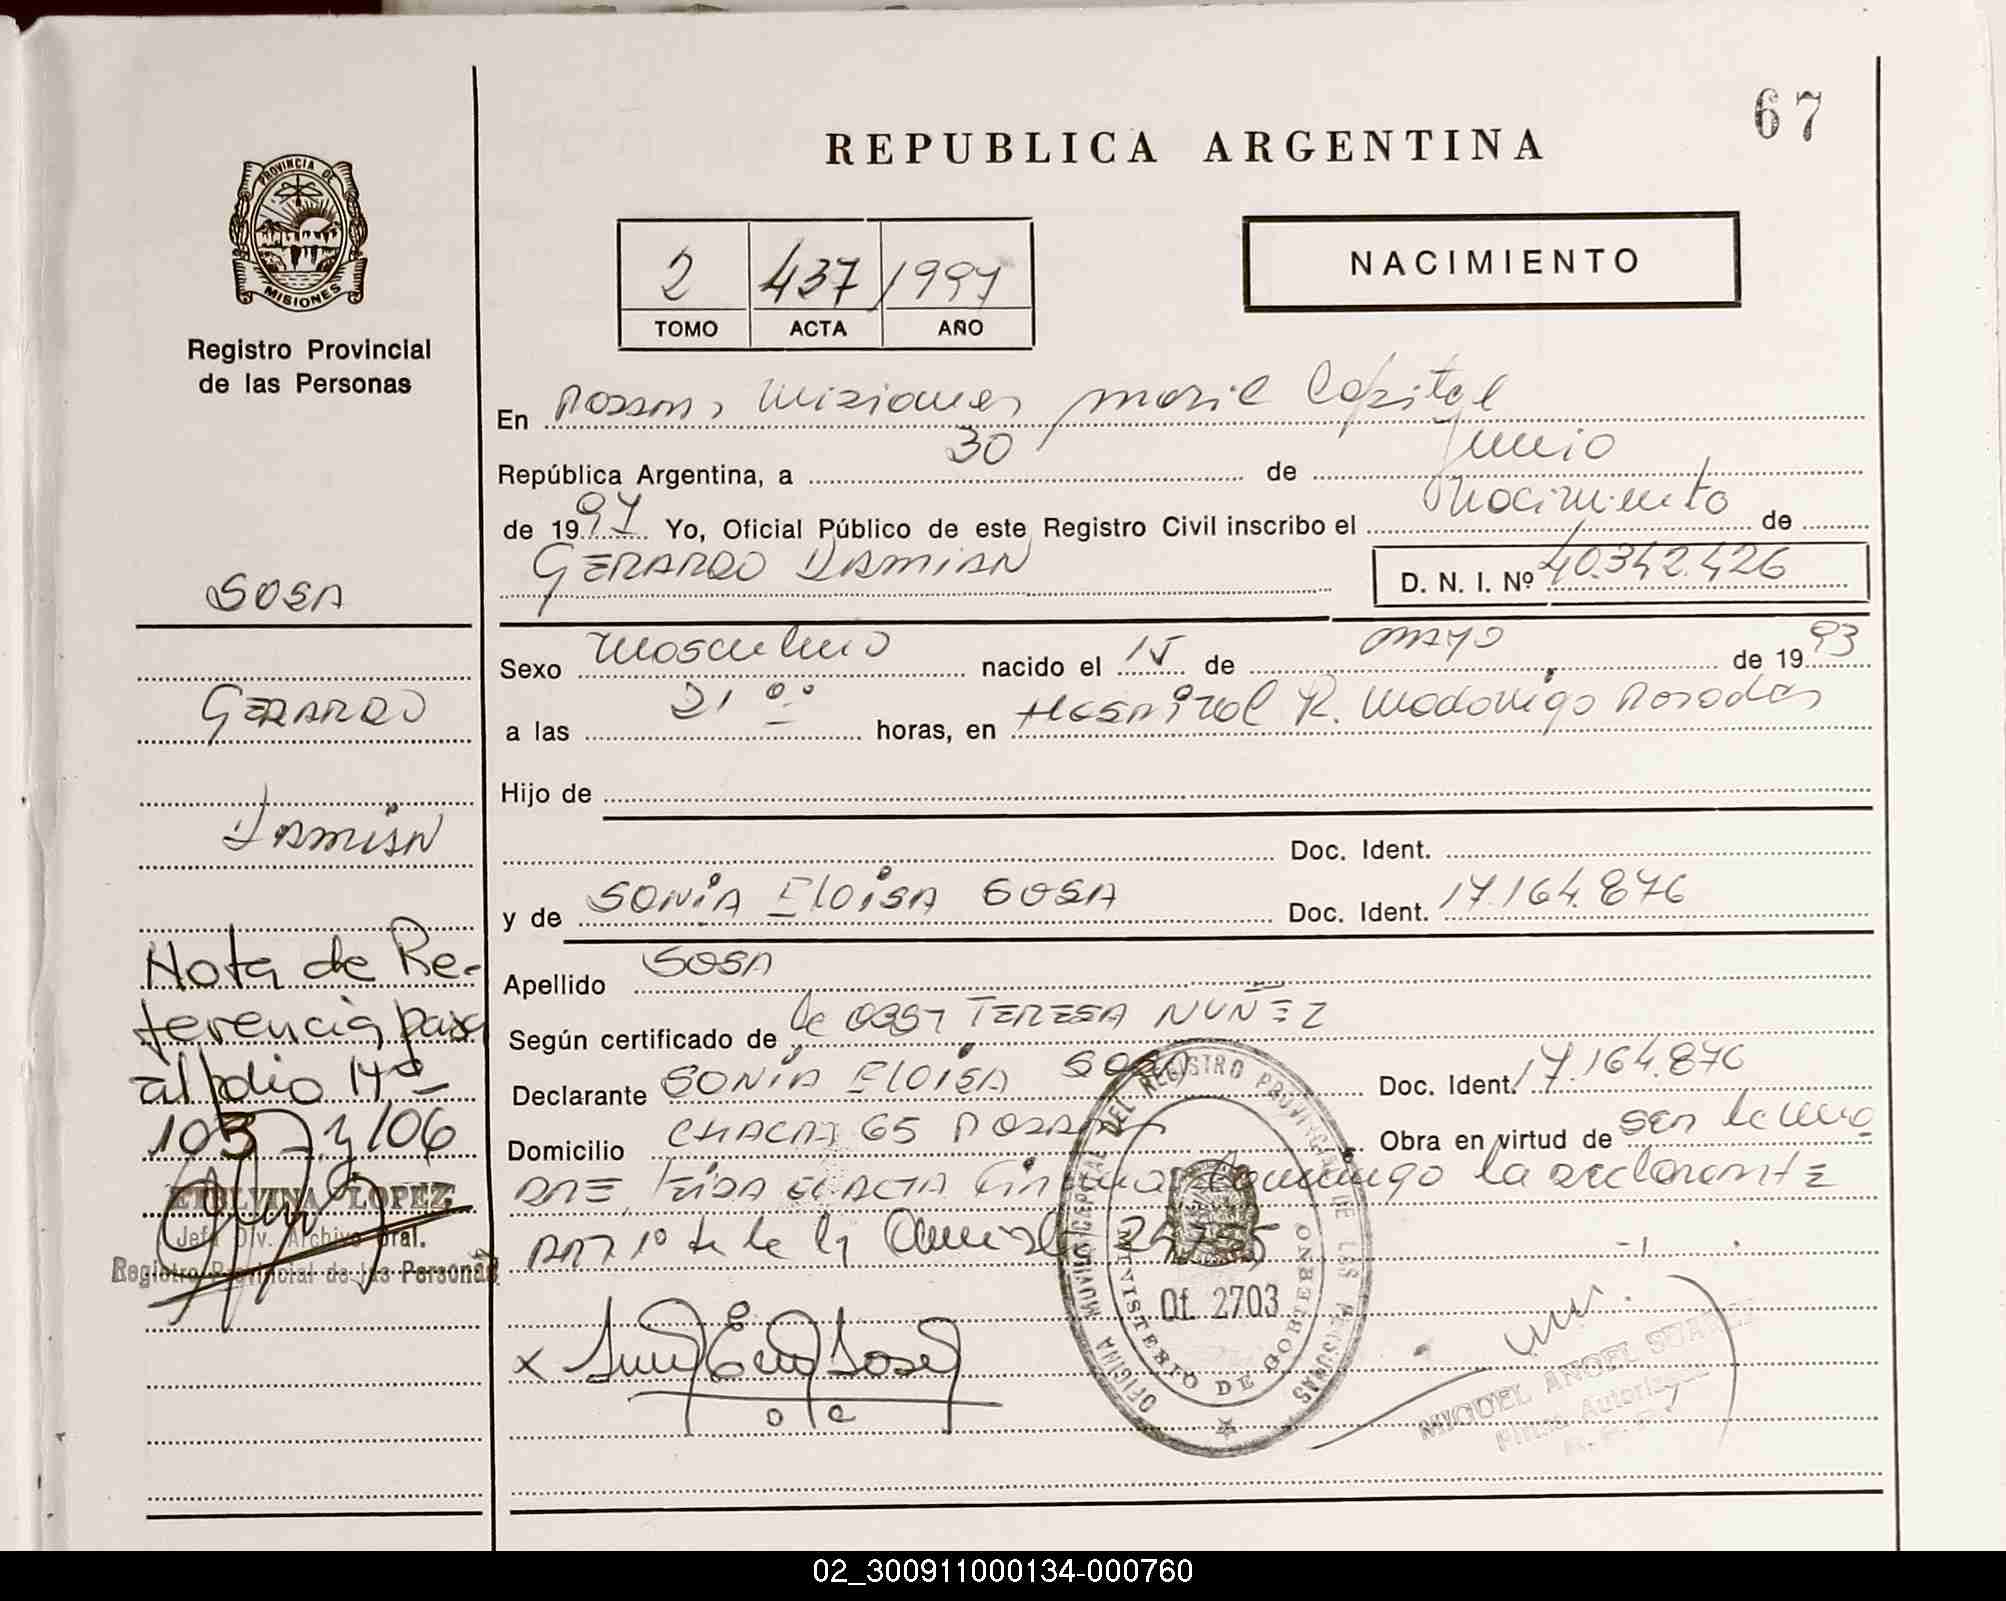 67
REPUBLICA ARGENTINA
PROVINCIA DE
MISIONES
Registro Provincial
de las Personas
NACIMIENTO
2 437 1997
TOMO ACTA AÑO
En Misiones movil Capital
República Argentina, a 30 de Junio
de 1997 Yo, Oficial Público de este Registro Civil inscribo el Nacimiento de
GERARDO DAMIAN D. N. I. Nº 40.342.426
Sexo Masculino nacido el 15 de MAYO de 1993
a las 21 00 horas, en Hospital R. Madariaga Posadas
Hijo de
Doc. Ident.
y de SONIA ELOISA SOSA Doc. Ident. 17.164.876
Apellido SOSA
Según certificado de la OBST TERESA NUÑEZ
Declarante SONIA ELOISA SOSA Doc. Ident. 17.164.876
Domicilio CHACRA 65 POSADAS Obra en virtud de ser la misma
LEIDA EL ACTA la declarante
ART 1º de la
x
SOSA
GERARDO
DAMIAN
Nota de Re-
ferencia, pase
al folio Nº
103 y 106
ETELVINA LOPEZ
Jefa Div. Archivo Gral.
Registro Provincial de las Personas
OFICINA MOVIL CAPITAL DEL REGISTRO PROVINCIAL DE LAS PERSONAS
MINISTERIO DE GOBIERNO
Of. 2703
MIGUEL ANGEL SUAREZ
Firma Autorizada
02_300911000134-000760